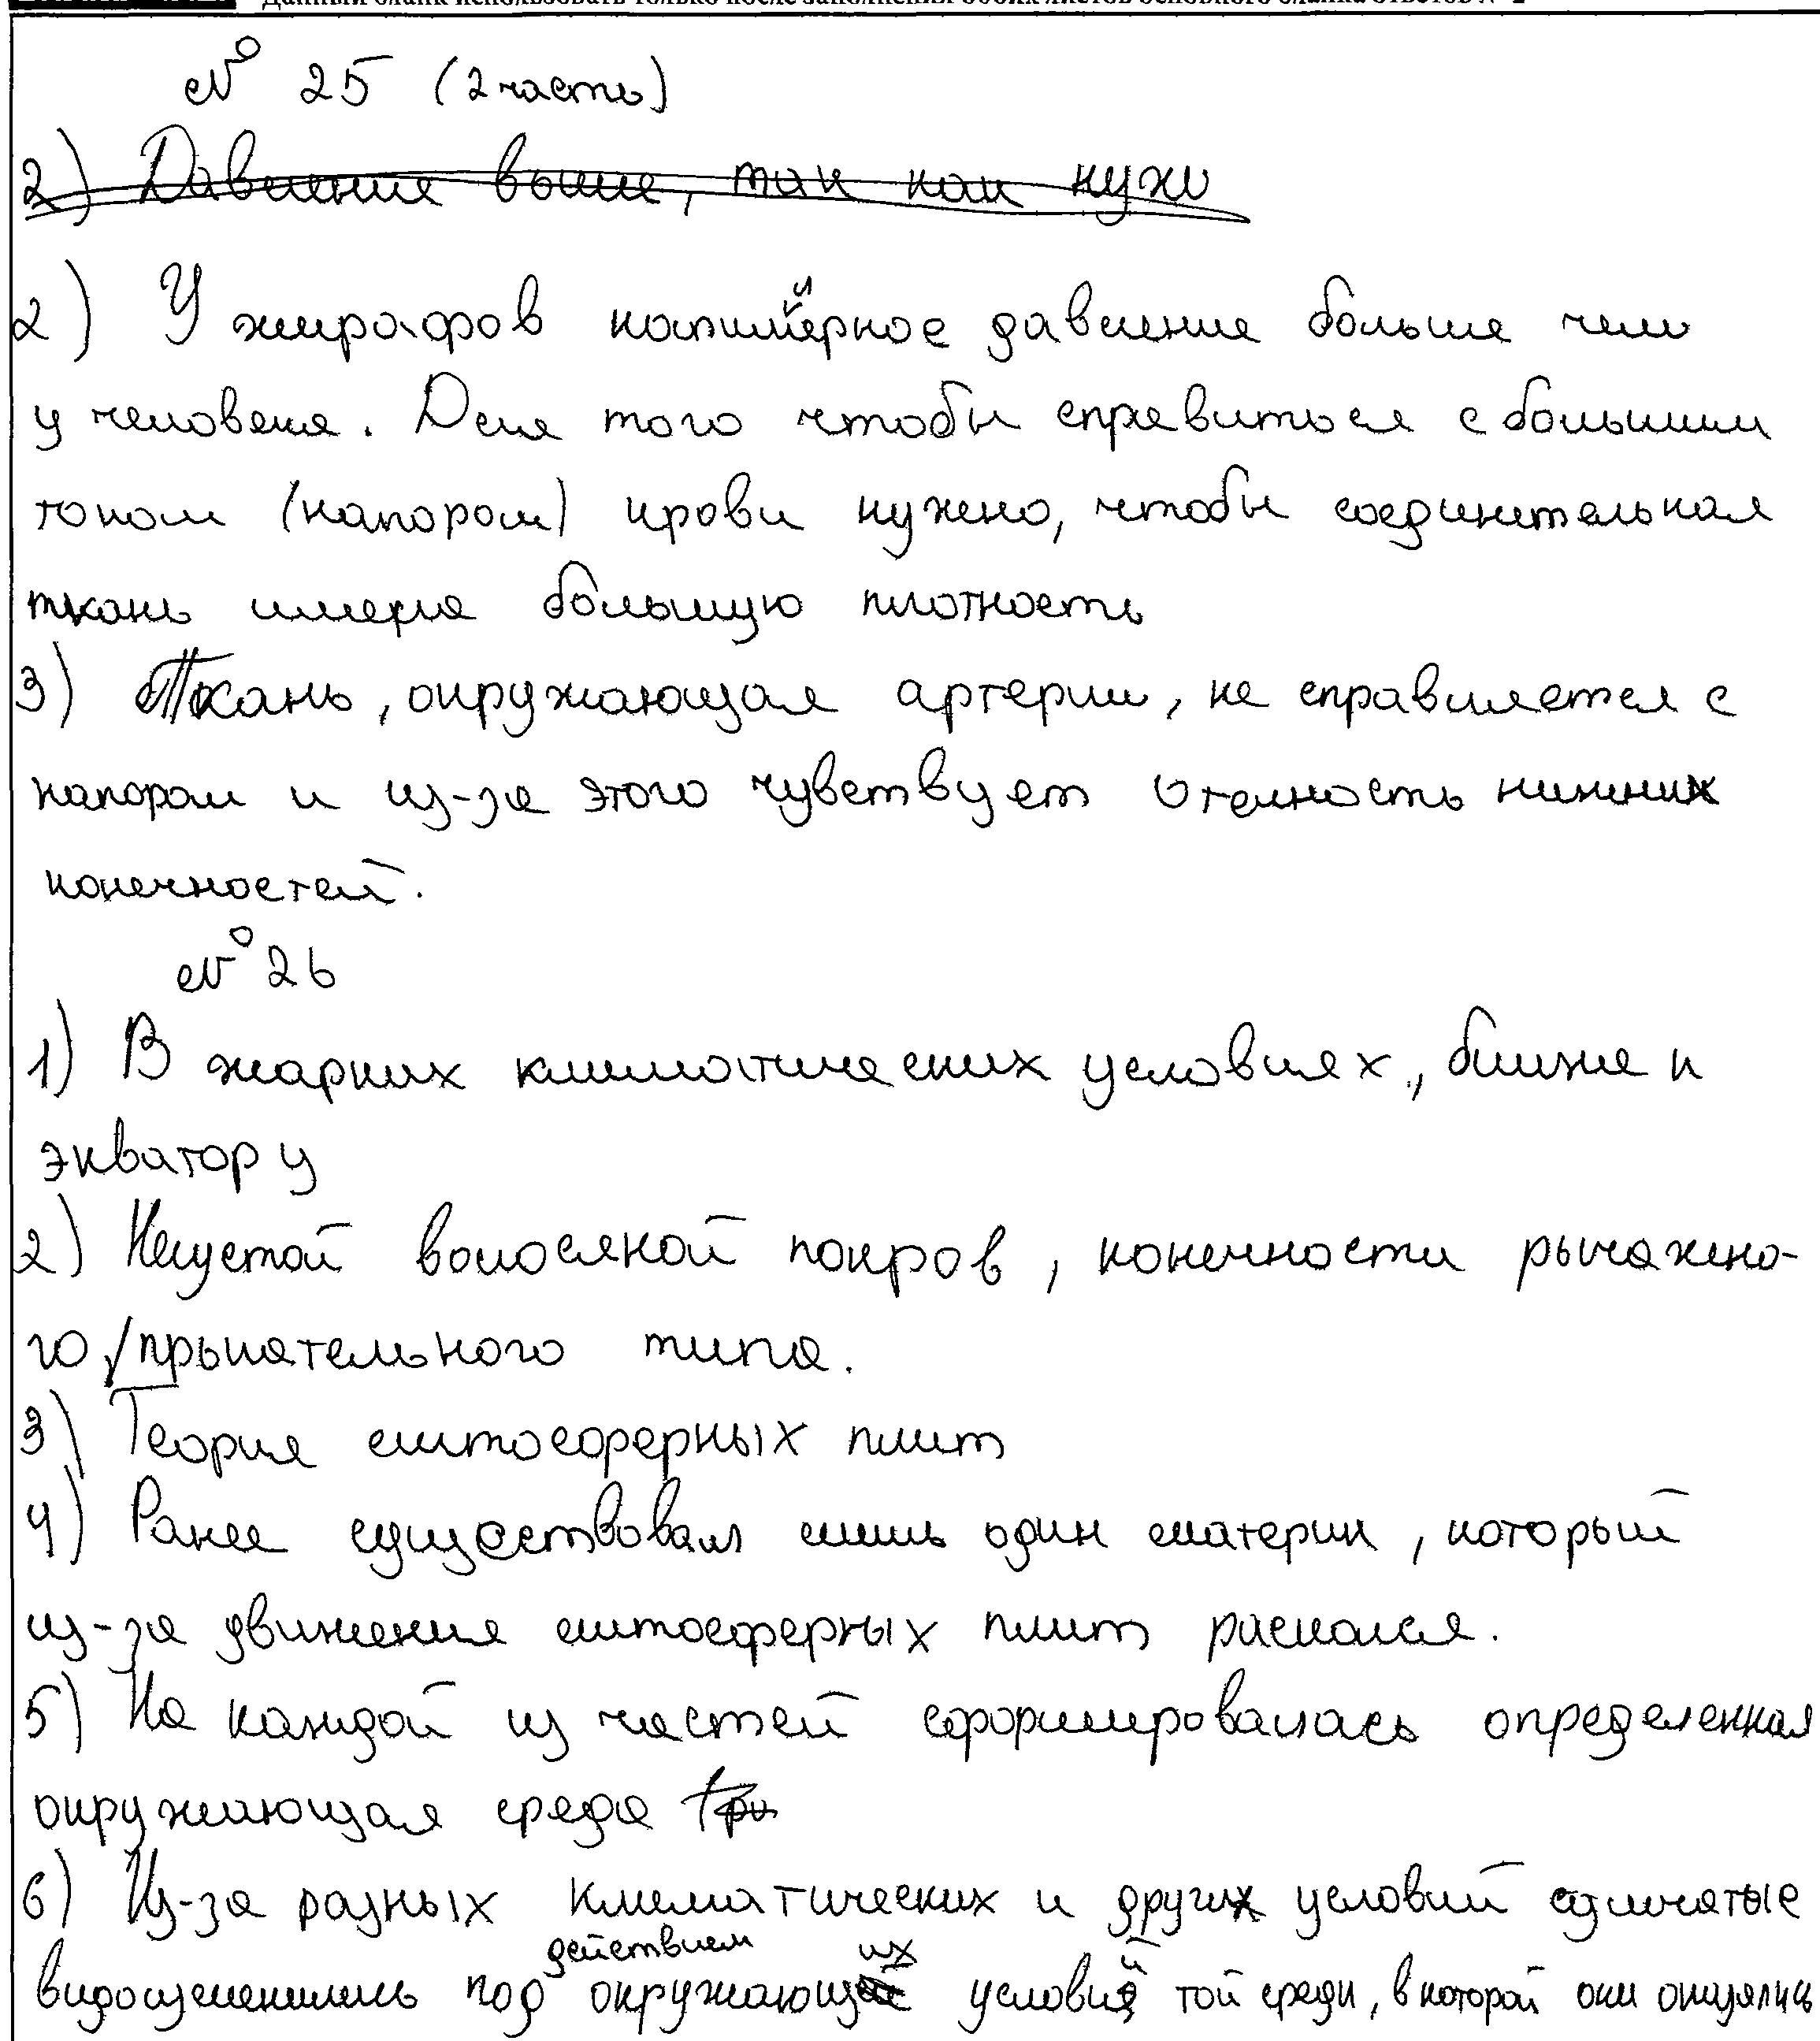 Данный бланк использовать только после заполнения обоих листов основного бланка ответов № 2
№ 25 (2 часть)
2) Давление выше, так как нужн
2) У жирафов капилярное давление больше чем
у человека. Для того чтобы справиться с большим
током (напором) крови нужно, чтобы соединительная
ткань имела большую плотность
3) Ткань, окружающая артерии, не справляется с
напором и из-за этого чувствует отечность нижних
конечностей.
№ 26
1) В жарких климатических условиях, ближе к
экватору
2) Негустой волосяной покров, конечности рычажно-
го/прыгательного типа.
3) Теория литосферных плит
4) Ранее существовал лишь один материк, который
из-за движения литосферных плит раскался.
5) На каждой из частей сформировалась определенная
окружающая среда
6) Из-за разных климатических и других условий сумчатые
видоизменились под действием окружающих условий той среды, в которой они оказались